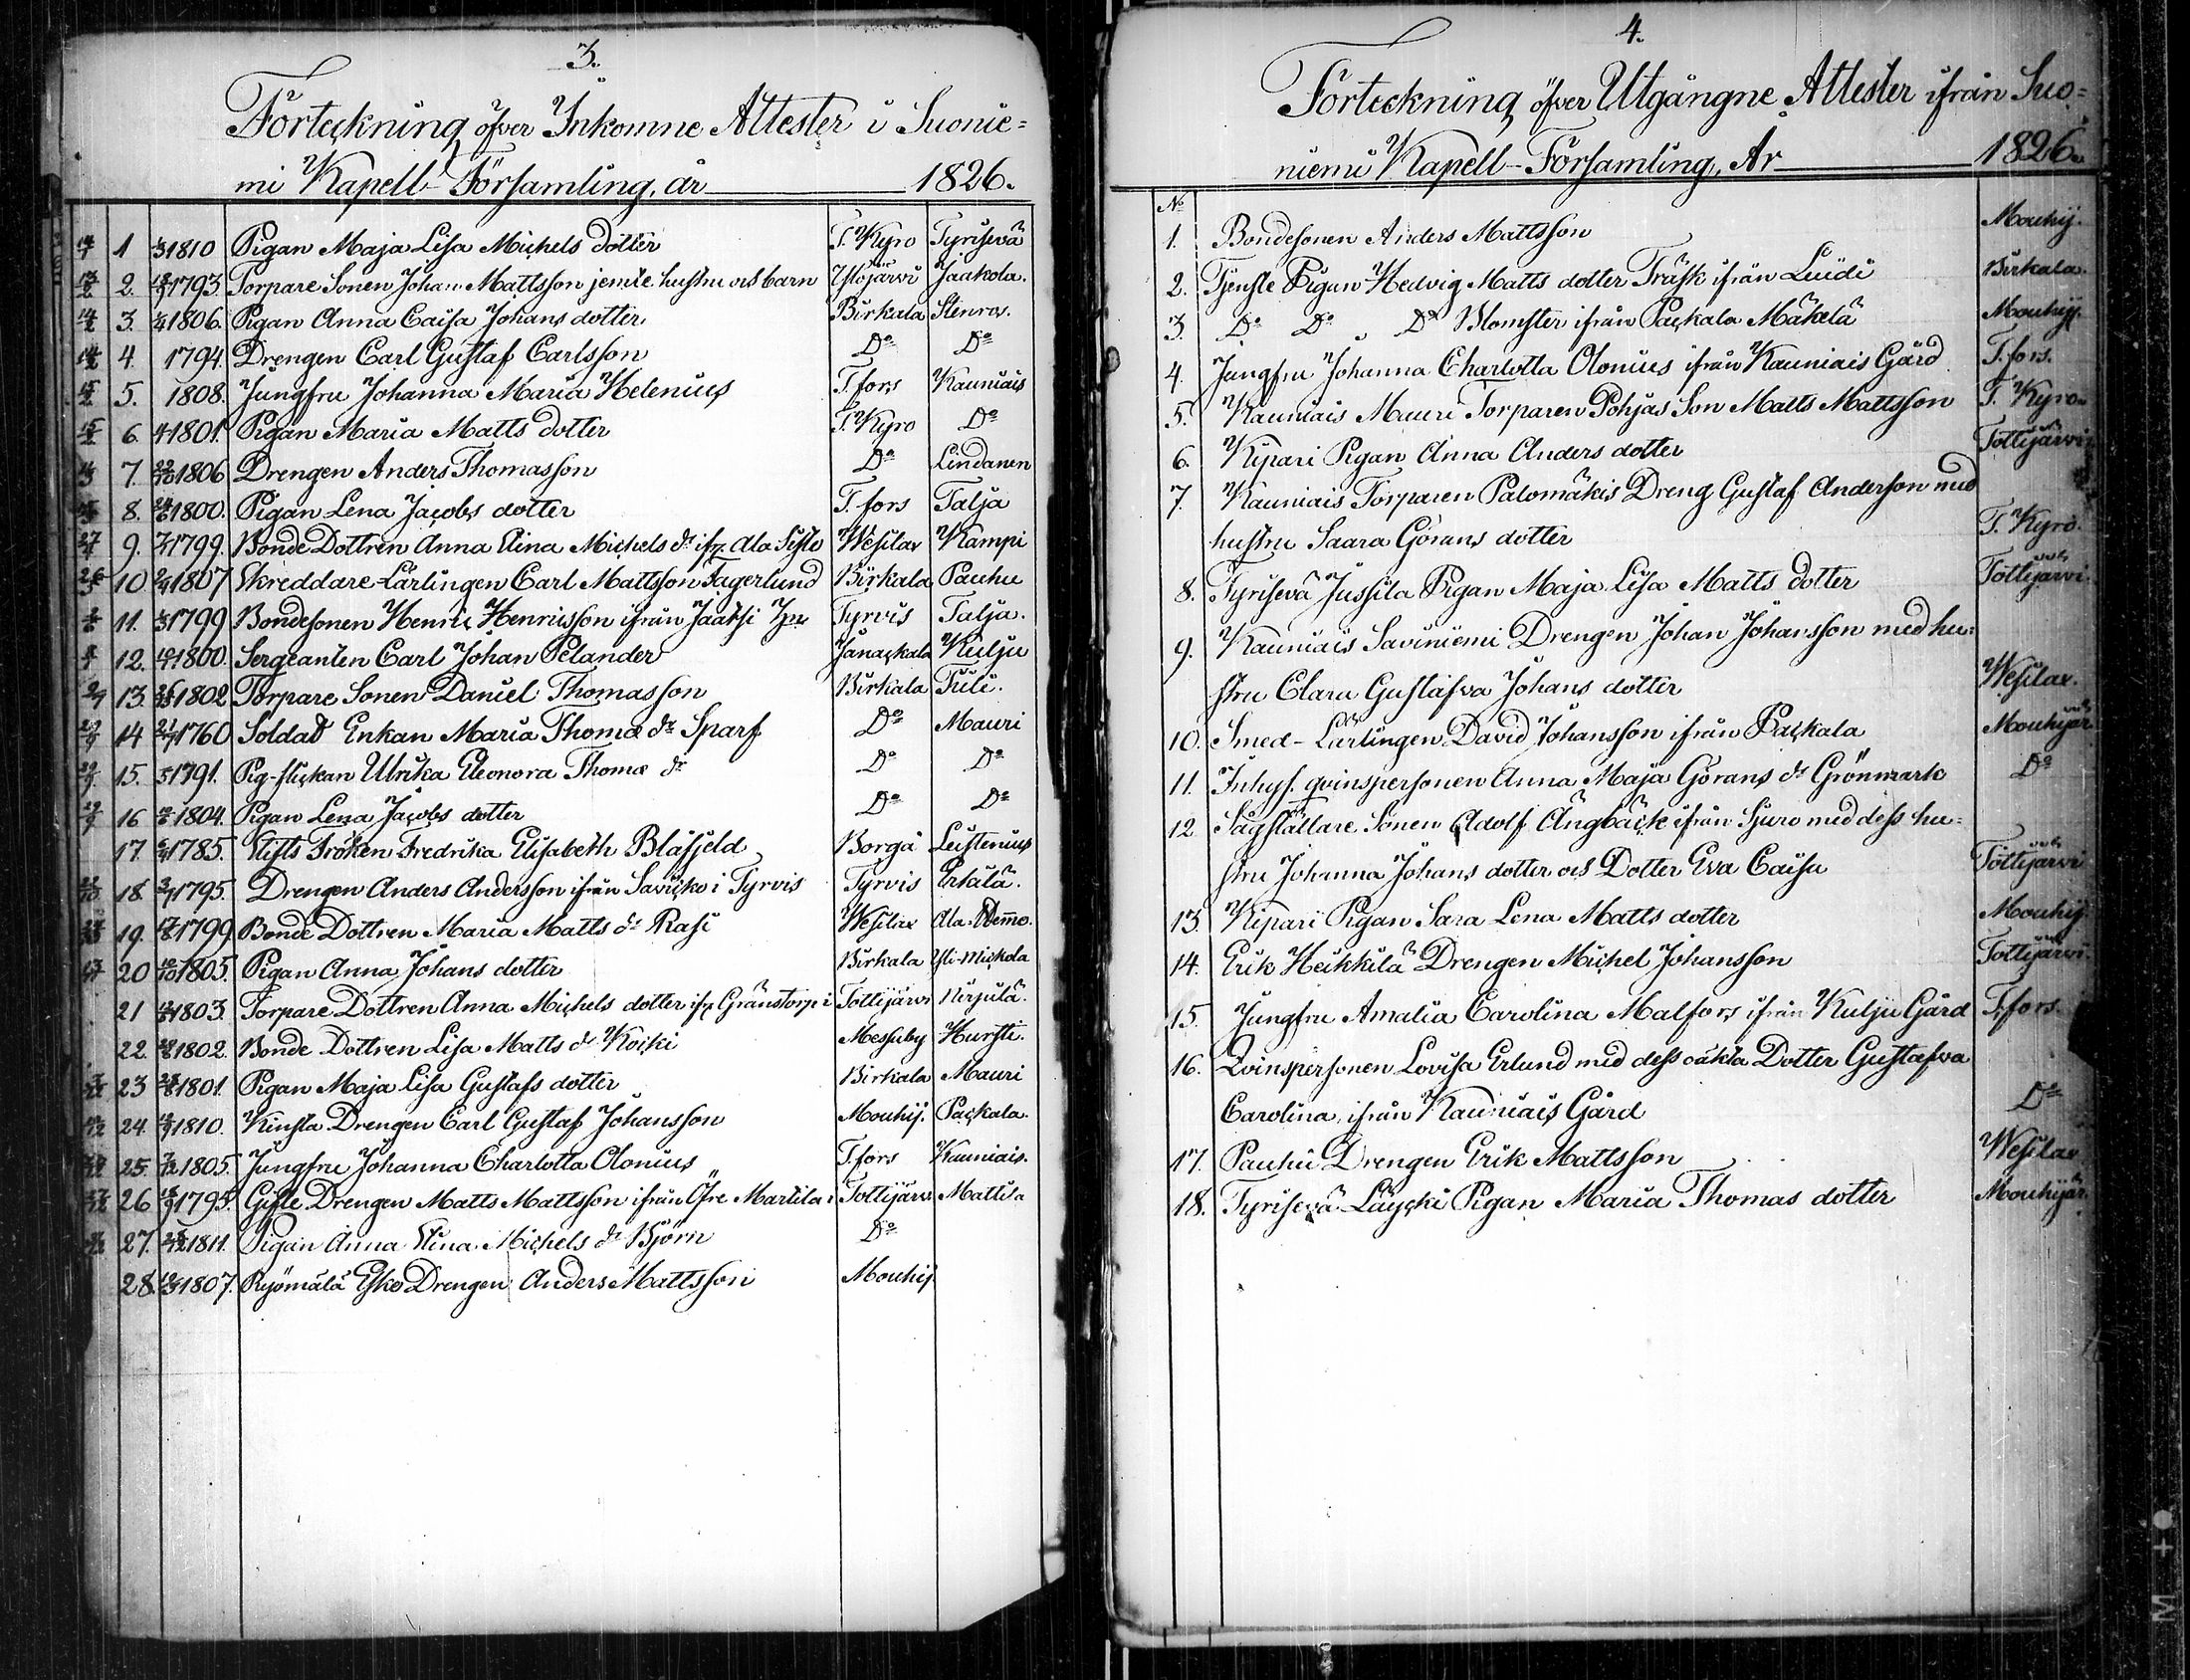 3.
Förteckning öfver Inkomne Attester i Suonie=
mi Kapell-Församling, år 1826.
1 1810 Pigan Maja Lisa Michels dotter T. Kyro Tyrisevä
2. 1793. Torpare Sonen Johan Mattsson jemte hustru och barn Ylöjärvi Jaakola.
3. 1806. Pigan Anna Caisa Johans dotter Birkala Stenros.
4. 1794. Drengen Carl Gustaf Carlsson Do Do
5. 1808. Jungfru Johanna Maria Helenius T.fors Kauniais
6. 1801. Pigan Maria Matts dotter T. Kyro Do
7. 1806 Drengen Anders Thomasson Do Lindanen
8. 1800. Pigan Lena Jacobs dotter T. fors Talja
9. 1799. Bonde Dottren Anna Stina Michels dr ifr. Ala Sisto Wesilax Kampi
10 1807 Skreddare-Lärlingen Carl Mattsson Fagerlund Birkala Pauhu
11. 1799 Bondesonen Henric Henricsson ifrån Jaatsi Tyrvis Talja.
12. 1800. Sergeanten Carl Johan Pelander Janackala Kulju
13. 1802 Torpare Sonen Daniel Thomasson Birkala Tuli.
14 1760 Soldat Enkan Maria Thomæ dr Sparf Do Mauri
15. 1791. Pig-flickan Ulrika Eleonora Thomæ dr Do Do
16 1804. Pigan Lena Jacobs dotter Do Do
17. 1785. Stifts Fröken Fredrika Elisabeth Blåfjeld Borgå Leistenius
18. 1795. Drengen Anders Andersson ifrån Savicko i Tyrvis Tyrvis Erkilä.
19. 1799 Bonde Dottren Maria Matts dr Rasi Wesilax Ala-
20 1805. Pigan Anna Johans dotter Birkala Yli-Mickola
21 1803. Torpare Dottren Anna Michels dotter ifr. Gränstorp i Tottijärvi Kirjulä.
22. 1802. Bonde Dottren Lisa Matts dr Koiki Messuby Hursti.
23 1801. Pigan Maja Lisa Gustafs dotter Birkala Mauri
24. 1810. Kinsta Drengen Carl Gustaf Johansson Mouhij. Packala.
25. 1805. Jungfru Johanna Charlotta Olonius T.fors Kauniais.
26 1795. Gifte Drengen Matts Mattsson ifrån Öfre Martila i Tottijärvi Mattila
27. 1811. Pigan Anna Stina Michels dr Björn Do
28. 1807. Ryömälä Esko Drengen Anders Mattsson Mouhij
4.
Förteckning öfver Utgångne Attester ifrån Suo=
niemi Kapell-Församling, År 1826.
No
1. Bondesonen Anders Mattsson Mouhij.
2. Tjenste Pigan Hedvig Matts dotter Träsk ifrån Luidi Birkala.
3. Do Do Do Blomster ifrån Packala Mäkelä Mouhij.
4. Jungfru Johanna Charlotta Olonius ifrån Kauniais Gård T.fors.
5. Kauniais Mauri Torparen Pohjas Son Matts Mattsson T. Kyro
6. Kipari Pigan Anna Anders dotter Tottijärvi
7. Kauniais Torparen Palomäkis Dreng Gustaf Anderson med
hustru Saara Görans dotter T. Kyro.
8. Tyrisevä Jussila Pigan Maja Lisa Matts dotter Tottijärvi.
9. Kauniais Saviniemi Drengen Johan Johansson med hu=
stru Clara Gustafva Johans dotter Wesilax.
10. Smed-Lärlingen David Johansson ifrån Packala Mouhijär
11. Inhys. qvinspersonen Anna Maja Görans dr Grönmark Do
12 Sågställare Sonen Adolf Ängbäck ifrån Sjuro med dess hu=
stru Johanna Johans dotter och Dotter Eva Caisa Tottijärvi
13. Kipari Pigan Sara Lena Matts dotter Mouhij
14. Erik Heikkilä Drengen Michel Johansson Tottijärvi.
15. Jungfru Amalia Carolina Malfors ifrån Kulju Gård T.fors.
16. Qvinspersonen Lovisa Erlund med dess oäkta Dotter Gustafva
Carolina, ifrån Kauniais Gård Do
17. Pauhu Drengen Erik Mattsson Wesilax
18. Tyrisevä Läycki Pigan Maria Thomas dotter Mouhijär.